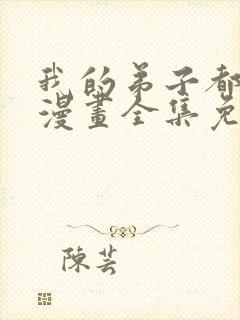 我的弟子都
漫畫全集免
陳芸